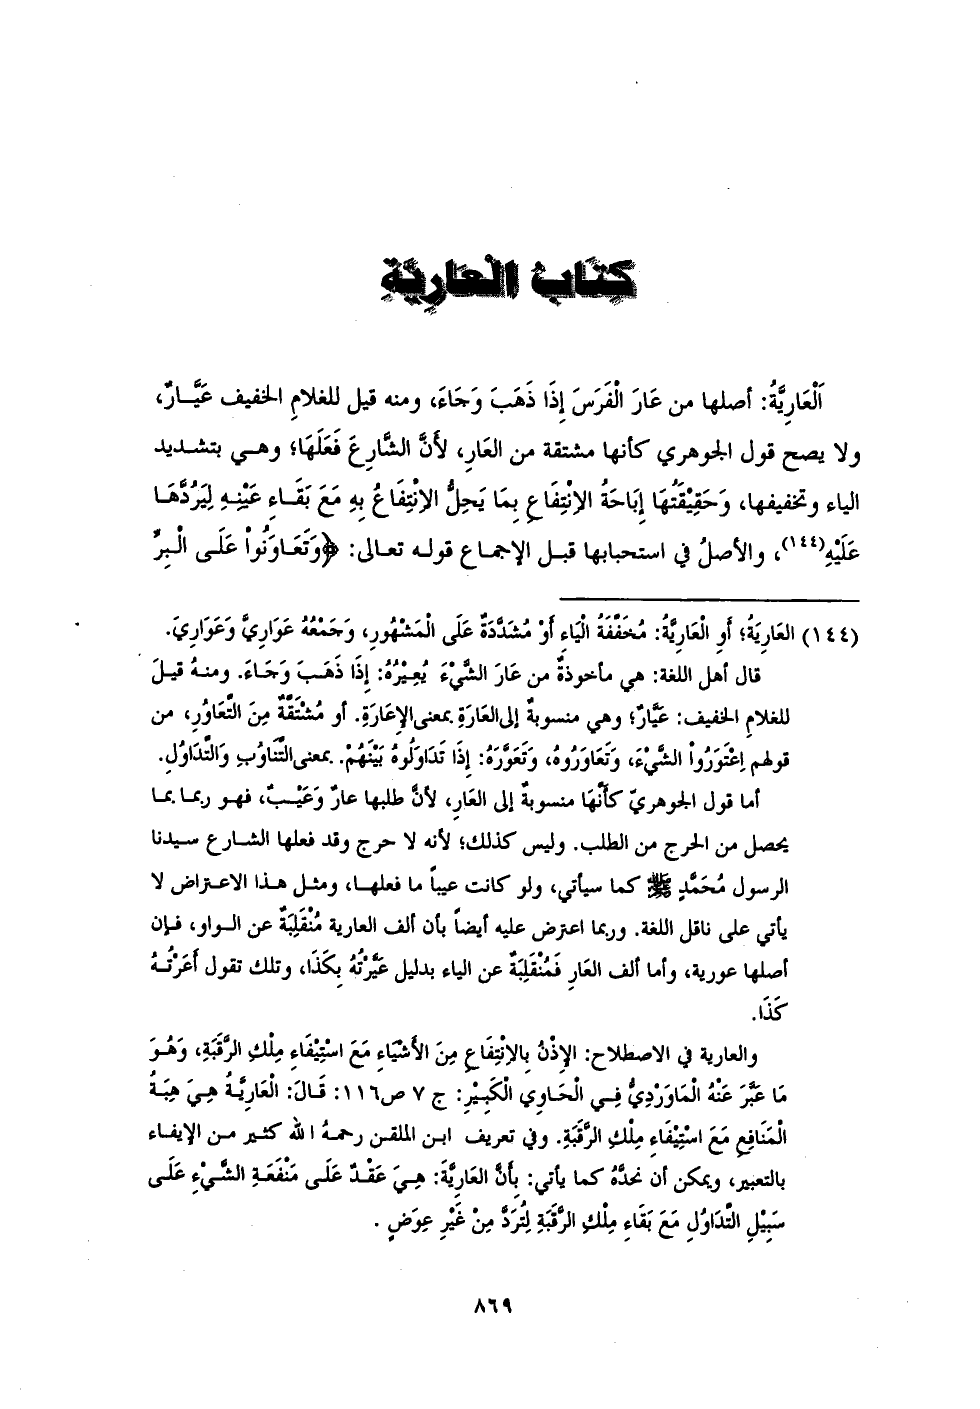 كِتَابُ الْعَارِيَّةِ
اَلْعَارِيَّةُ: أصلها من عَارَ الْفَرَسَ إِذَا ذَهَبَ وَجَاءَ، ومنه قيل للغلامِ الخفيف عَيَّارٌ،
ولا يصح قول الجوهري كأنها مشتقة من العَارِ، لأَنَّ الشَّارِعَ فَعَلَهَا؛ وهي بتشديد
الياء وتخفيفها، وَحَقِيْقَتُهَا إِبَاحَةُ الاِنْتِفَاعِ بِمَا يَحِلُّ الاِنْتِفَاعُ بِهِ مَعَ بَقَاءِ عَيْنِهِ لِيَرُدَّهَا
عَلَيْهِ(١٤٤)، والأصلُ في استحبابها قبل الإجماع قوله تعالى: ﴿وَتَعَاوَنُواْ عَلَى الْبِرِّ
(١٤٤) العَارِيَةُ؛ أَوِ الْعَارِيَّةُ: مُخَفَّفَةُ الْيَاءِ أَوْ مُشَدَّدَةٌ عَلَى الْمَشْهُورِ، وَجَمْعُهُ عَوَارِيَّ وَعَوَارِيَ.
قال أهل اللغة: هي مأخوذةٌ من عَارَ الشَّيْءَ يُعِيْرُهُ: إِذَا ذَهَبَ وَجَاءَ. ومنهُ قيلَ
للغلامِ الخفيف: عَيَّارٌ؛ وهي منسوبةٌ إلى العَارَةِ بمعنى الإِعَارَةِ. أو مُشْتَقَّةٌ مِنَ التَّعَاوُرِ، من
قولهم اِعْتَوَرُواْ الشَّيْءَ، وَتَعَاوَرُوهُ، وَتَعَوَّرَهُ: إِذَا تَدَاوَلُوهُ بَيْنَهُمْ. بمعنى التَّنَاوُبِ وَالتَّدَاوُلِ.
أما قول الجوهريّ كأَنَّهَا منسوبةٌ إلى العَارِ، لأنَّ طلبها عارٌ وَعَيْبٌ، فهو ربما بما
يحصل من الحرج من الطلب. وليس كذلك؛ لأنه لا حرج وقد فعلها الشارع سيدنا
الرسول مُحَمَّدٍ ﷺ كما سيأتي، ولو كانت عيباً ما فعلها، ومثل هذا الاعتراض لا
يأتي على ناقل اللغة. وربما اعترض عليه أيضاً بأن ألف العارية مُنْقَلِبَةٌ عن الواو، فإن
أصلها عورية، وأما ألف العَارِ فَمُنْقَلِبَةٌ عن الياء بدليل عَيَّرْتُهُ بِكَذَا، وتلك تقول أَعَرْتُهُ
كَذَا.
والعارية في الاصطلاح: الإِذْنُ بِالاِنْتِفَاعِ مِنَ الأَشْيَاءِ مَعَ اسْتِيْفَاءِ مِلْكِ الرَّقَبَةِ، وَهُوَ
مَا عَبَّرَ عَنْهُ الْمَاوَرْدِيُّ فِي الْحَاوِي الْكَبِيْرِ: ج ٧ ص١١٦: قَالَ: الْعَارِيَّةُ هِيَ هِبَةُ
الْمَنَافِعِ مَعَ اسْتِيْفَاءِ مِلْكِ الرَّقَبَةِ. وفي تعريف ابن الملقن رحمهُ اللهُ كثير من الإيفاء
بالتعبير، ويمكن أن نحدَّهُ كما يأتي: بِأَنَّ العَارِيَّةَ: هِيَ عَقْدٌ عَلَى مَنْفَعَةِ الشَّيْءِ عَلَى
سَبِيْلِ التَّدَاوُلِ مَعَ بَقَاءِ مِلْكِ الرَّقَبَةِ لِتُرَدَّ مِنْ غَيْرِ عِوَضٍ .
٨٦٩